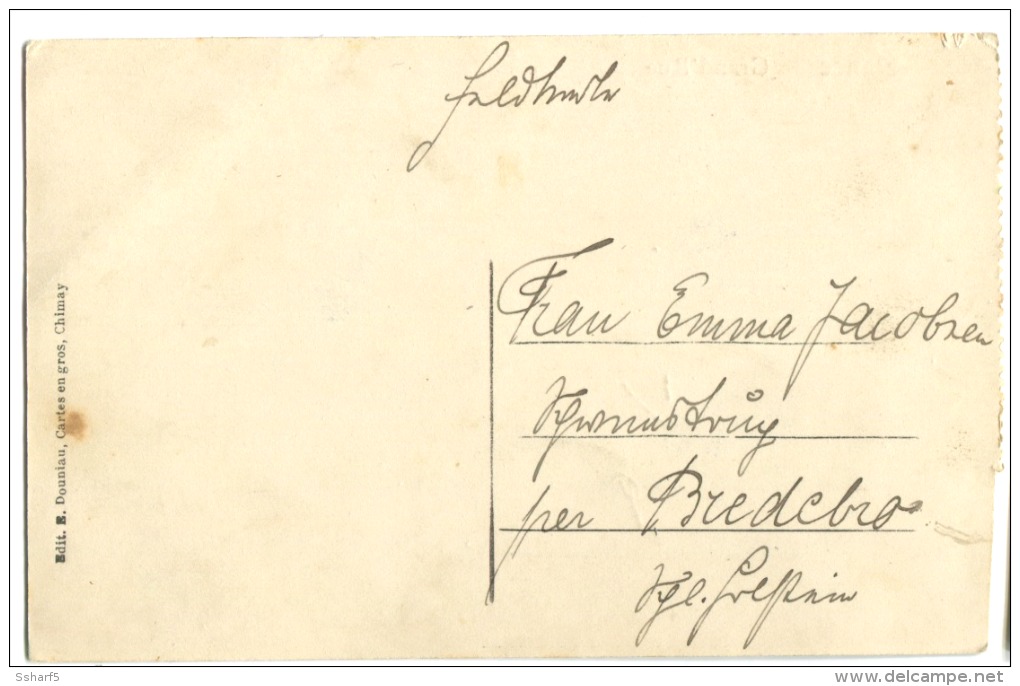 Feldkarte
Frau Emma Jacobsen
per Bredebro
Schl. Holstein
Edit. E. Douniau, Cartes en gros, Chimay
Ssharf5
www.delcampe.net